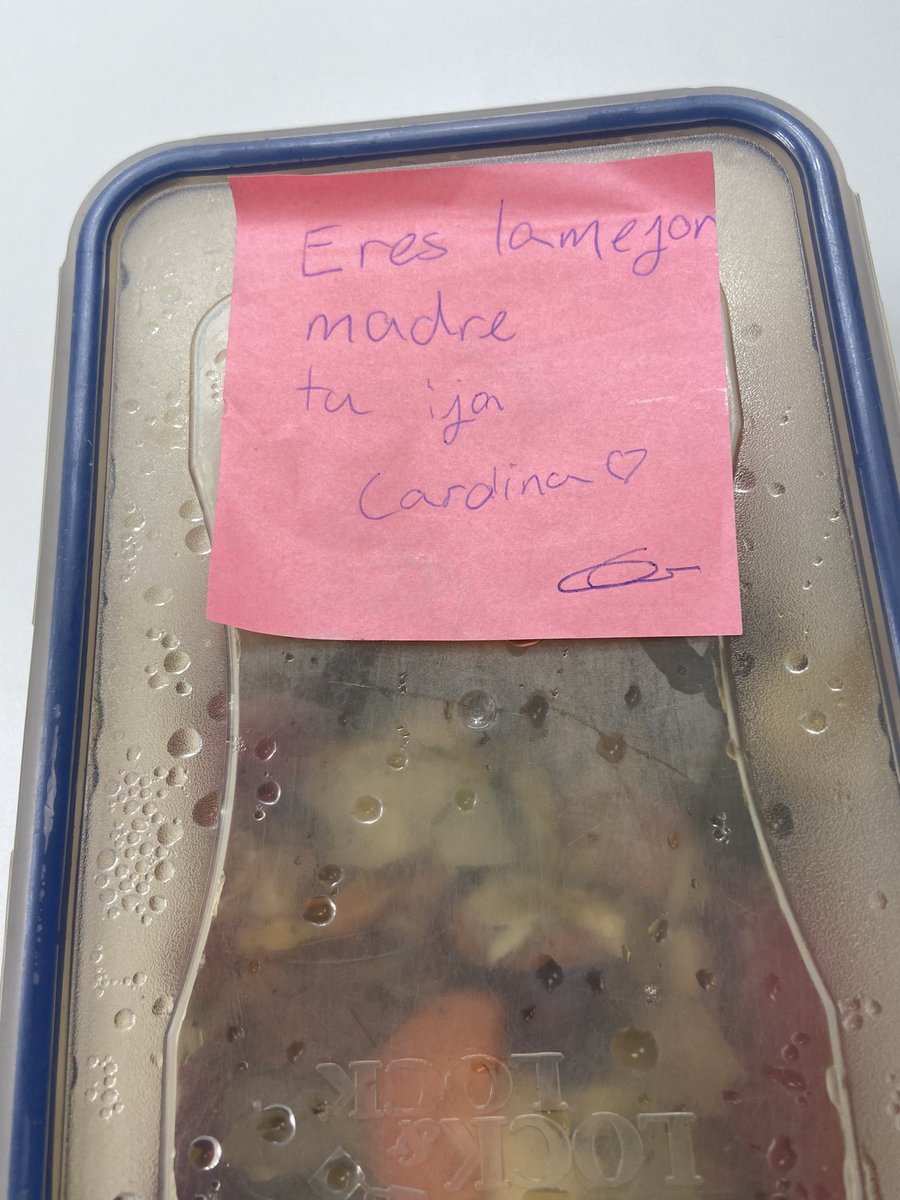 Eres lamejor
madre
tu ija
Cardina♡
LOCK &
LOCK